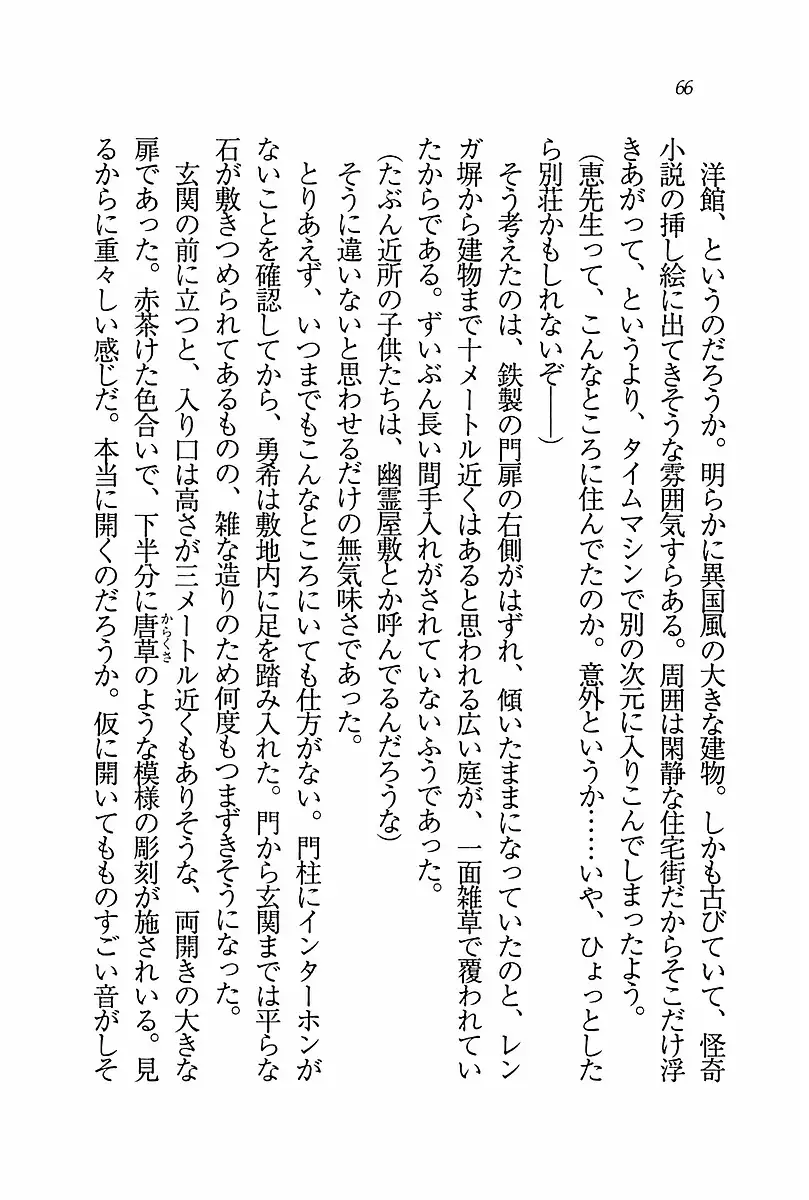 66
　洋館、というのだろうか。明らかに異国風の大きな建物。しかも古びていて、怪奇
小説の挿し絵に出てきそうな雰囲気すらある。周囲は閑静な住宅街だからそこだけ浮
きあがって、というより、タイムマシンで別の次元に入りこんでしまったよう。
（恵先生って、こんなところに住んでたのか。意外というか……いや、ひょっとした
ら別荘かもしれないぞ――）
　そう考えたのは、鉄製の門扉の右側がはずれ、傾いたままになっていたのと、レン
ガ塀から建物まで十メートル近くはあると思われる広い庭が、一面雑草で覆われてい
たからである。ずいぶん長い間手入れがされていないふうであった。
（たぶん近所の子供たちは、幽霊屋敷とか呼んでるんだろうな）
　そうに違いないと思わせるだけの無気味さであった。
　とりあえず、いつまでもこんなところにいても仕方がない。門柱にインターホンが
ないことを確認してから、勇希は敷地内に足を踏み入れた。門から玄関までは平らな
石が敷きつめられてあるものの、雑な造りのため何度もつまずきそうになった。
　玄関の前に立つと、入り口は高さが三メートル近くもありそうな、両開きの大きな
扉であった。赤茶けた色合いで、下半分に唐草からくさのような模様の彫刻が施されいる。見
るからに重々しい感じだ。本当に開くのだろうか。仮に開いてもものすごい音がしそ